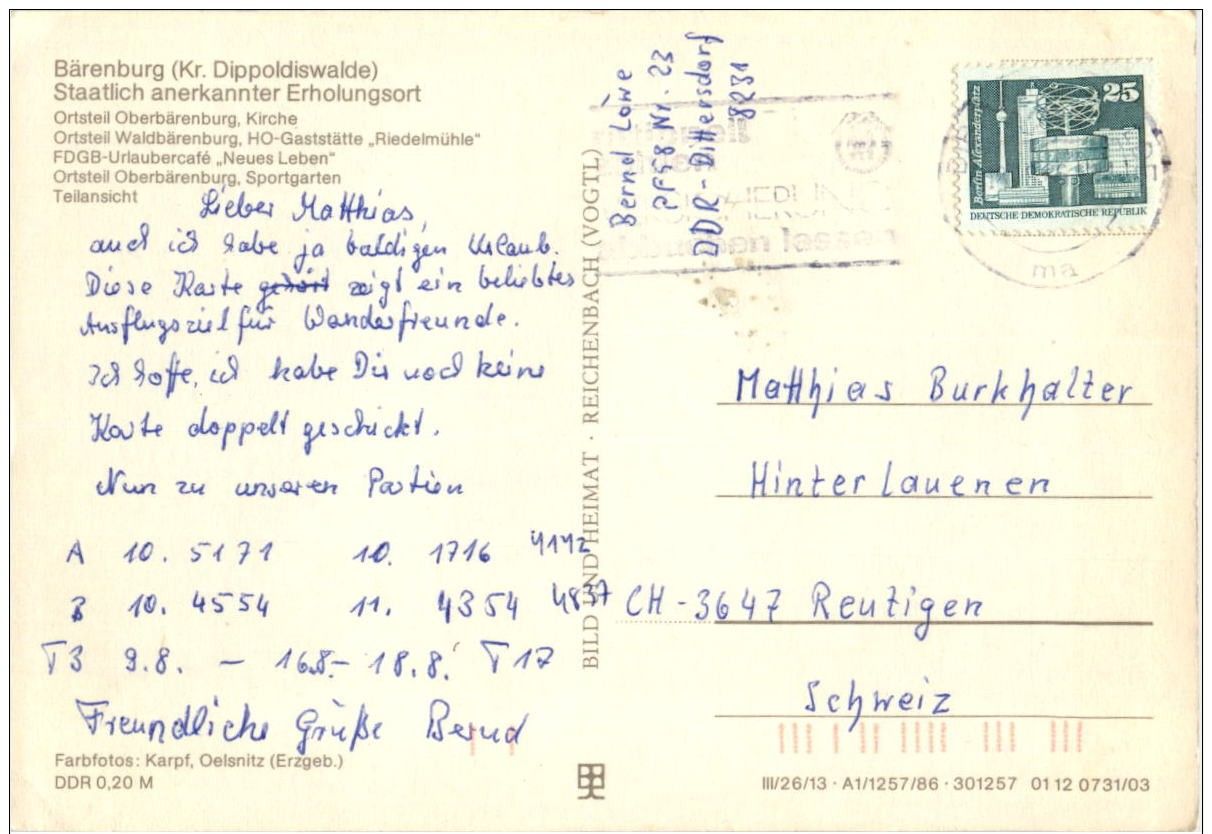 Bärenburg (Kr. Dippoldiswalde)
Staatlich anerkannter Erholungsort
Ortsteil Oberbärenburg, Kirche
Ortsteil Waldbärenburg, HO-Gaststätte „Riedelmühle“
FDGB-Urlaubercafé „Neues Leben“
Ortsteil Oberbärenburg, Sportgarten
Teilansicht
Lieber Matthias,
auch ich habe ja baldigen Urlaub.
Diese Karte zeigt ein beliebtes
Ausflugsziel für Wanderfreunde.
Ich hoffe, ich habe Dir noch keine
Karte doppelt geschickt.
Nun zu unseren Partien
A 10. 5171 10. 1716 4142
B 10. 4554 11. 4354 4837
T3 9.8. – 16.8. – 18.8. T17
Freundliche Grüße Bernd
Farbfotos: Karpf, Oelsnitz (Erzgeb.)
DDR 0,20 M
BILD UND HEIMAT · REICHENBACH (VOGTL)
Bernd Löwe
PF58 Nr. 23
DDR-Dittersdorf
8231
25
Berlin Alexanderplatz
DEUTSCHE DEMOKRATISCHE REPUBLIK
ma
Matthias Burkhalter
Hinterlauenen
CH-3647 Reutigen
Schweiz
III/26/13 · A1/1257/86 · 301257 01 12 0731/03